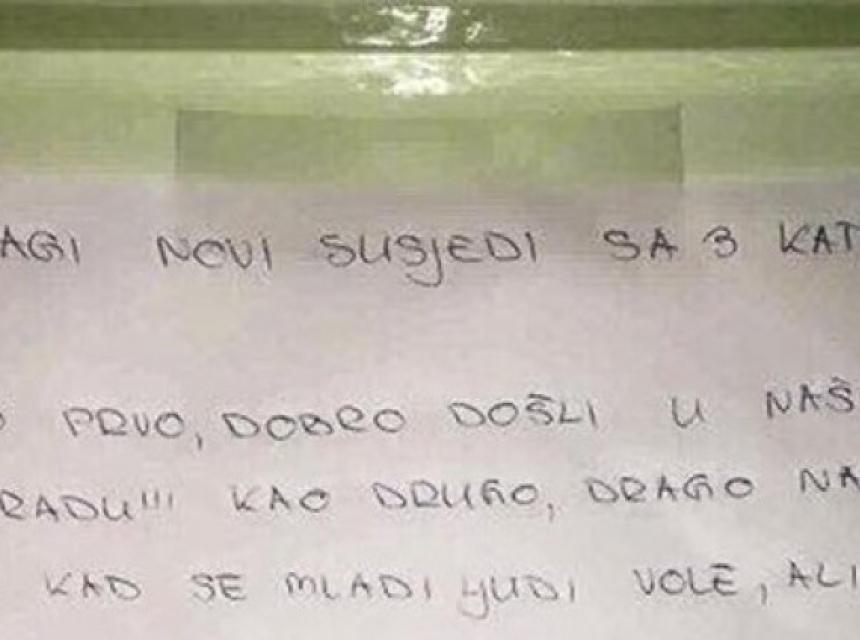 AGI NOVI SUSJEDI SA 3 KAT
O PRVO, DOBRO DOŠLI U NAŠ
RADU!!! KAO DRUGO, DRAGO NA
KAD SE MLADI LJUDI VOLE, ALI